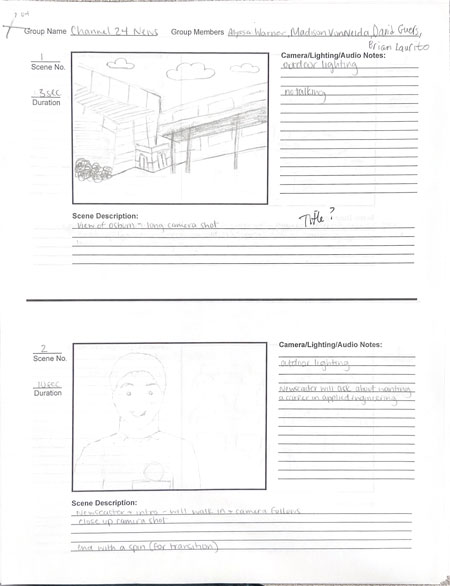 Group Name Channel 24 News Group Members Alyssa Warner, Madison VanNeida, David Guers,
Brian Laurito
1
Scene No.
3 sec
Duration
Camera/Lighting/Audio Notes:
outdoor lighting
no talking
Scene Description:
view of Osburn - long camera shot
Title?
2
Scene No.
10 sec
Duration
Camera/Lighting/Audio Notes:
outdoor lighting
Newscaster will ask about wanting
a career in applied engineering
Scene Description:
Newscaster intro - will walk in + camera follows
close up camera shot
End with a spin (for transition)